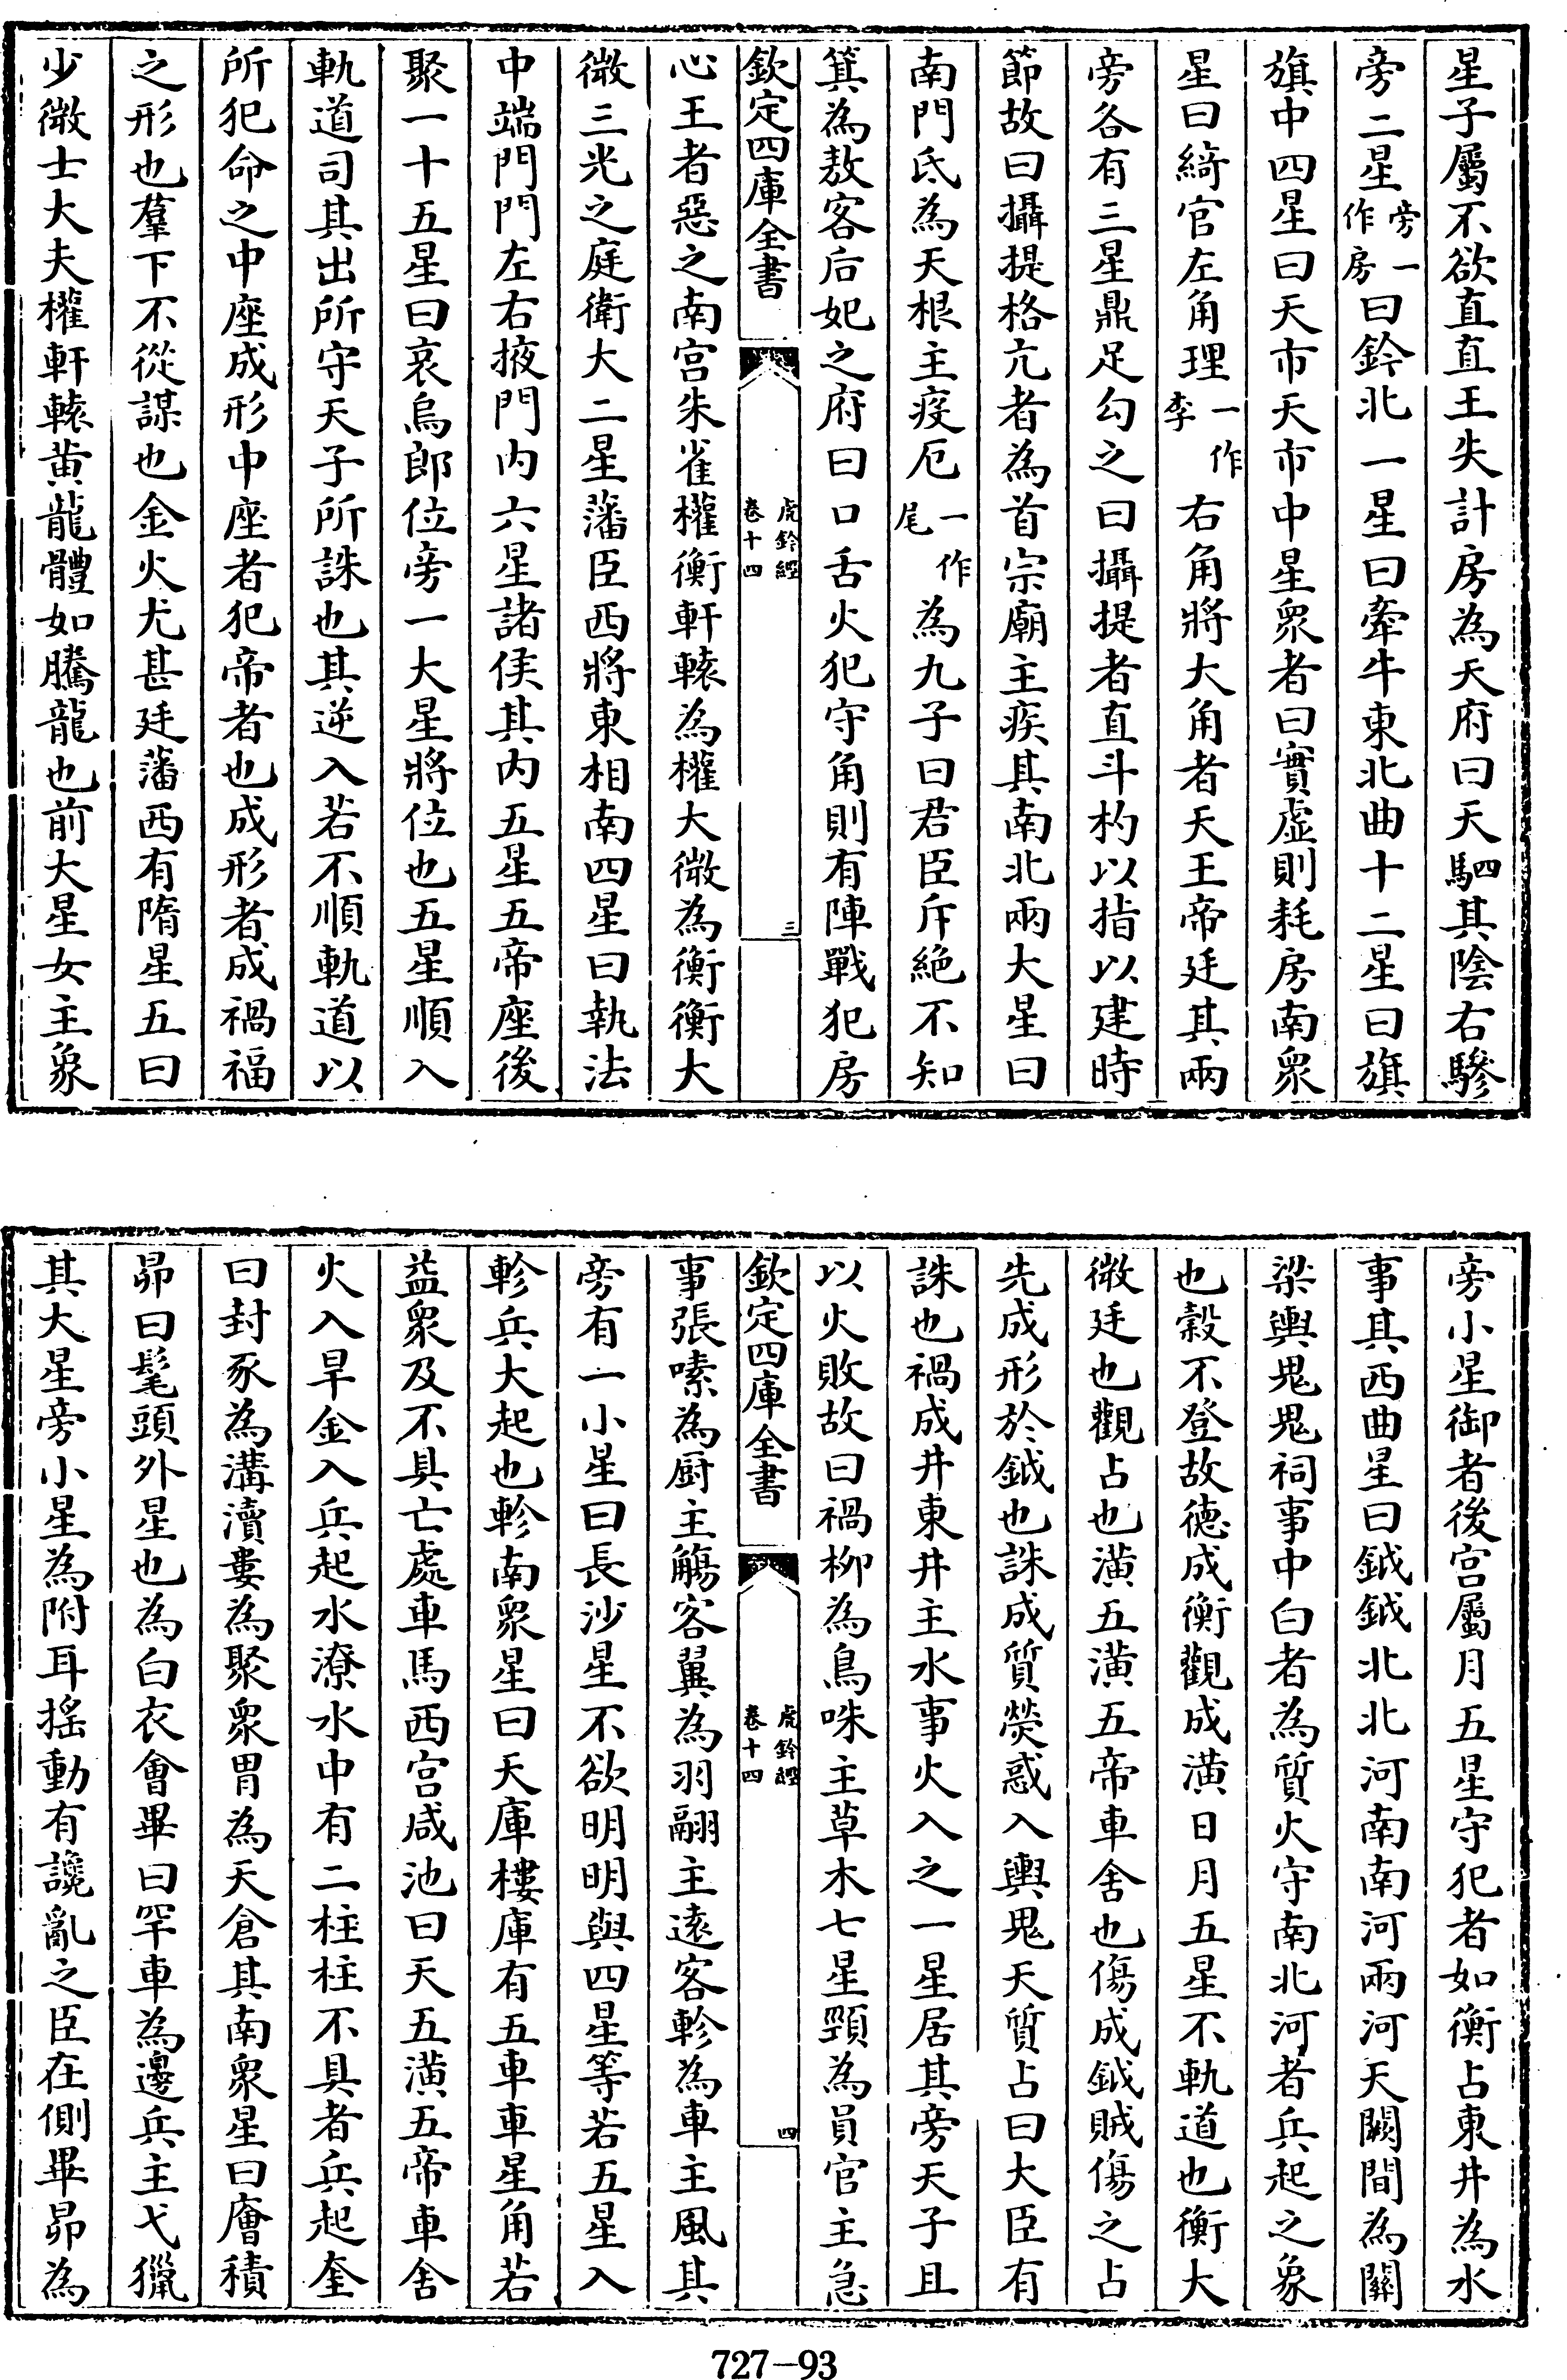 星子屬不欲直直王失計房為天府曰天駟其陰右驂
旁二星旁一作房曰鈐北一星曰牽牛東北曲十二星曰旗
旗中四星曰天市天市中星衆者曰實虛則耗房南衆
星曰綺官左角理一作李右角將大角者天王帝廷其兩
旁各有三星鼎足勾之曰攝提者直斗杓以指以建時
節故曰攝提格亢者為首宗廟主疾其南北兩大星曰
南門氐為天根主疫厄一作尾為九子曰君臣斥絕不知
箕為敖客后妃之府曰口舌火犯守角則有陣戰犯房
欽定四庫全書
虎鈐經
卷十四
三
心王者惡之南宫朱雀權衡軒轅為權大微為衡衡大
微三光之庭衛大二星藩臣西將東相南四星曰執法
中端門門左右掖門内六星諸侯其内五星五帝座後
聚一十五星曰哀烏郎位旁一大星將位也五星順入
軌道司其出所守天子所誅也其逆入若不順軌道以
所犯命之中座成形中座者犯帝者也成形者成禍福
之形也羣下不從謀也金火尤甚廷藩西有隋星五曰
少微士大夫權軒轅黄龍體如騰龍也前大星女主象
旁小星御者後宫屬月五星守犯者如衡占東井為水
事其西曲星曰鉞鉞北北河南南河兩河天闕間為關
梁輿鬼鬼祠事中白者為質火守南北河者兵起之象
也穀不登故德成衡觀成潢日月五星不軌道也衡大
微廷也觀占也潢五潢五帝車舍也傷成鉞賊傷之占
先成形於鉞也誅成質熒惑入輿鬼天質占曰大臣有
誅也禍成井東井主水事火入之一星居其旁天子且
以火敗故曰禍柳為鳥咮主草木七星頸為員官主急
欽定四庫全書
虎鈐經
卷十四
四
事張嗉為厨主觴客翼為羽翮主遠客軫為車主風其
旁有一小星曰長沙星不欲明明與四星等若五星入
軫兵大起也軫南衆星曰天庫樓庫有五車車星角若
益衆及不具亡處車馬西宫咸池曰天五潢五帝車舍
火入旱金入兵起水潦水中有二柱柱不具者兵起奎
曰封豕為溝瀆婁為聚衆胃為天倉其南衆星曰廥積
昴曰髦頭外星也為白衣會畢曰罕車為邊兵主弋獵
其大星旁小星為附耳揺動有讒亂之臣在側畢昴為
727-93